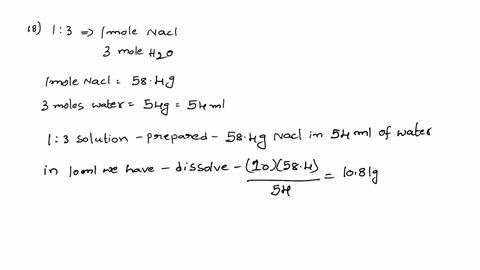 18) 1:3 => 1mole Nacl
3 mole H2O
1mole Nacl = 58.4g
3 moles water = 54g = 54ml
1:3 solution - prepared - 58.4g Nacl in 54 ml of water
in 10ml we have - dissolve - (10)(58.4) / 54 = 10.81g